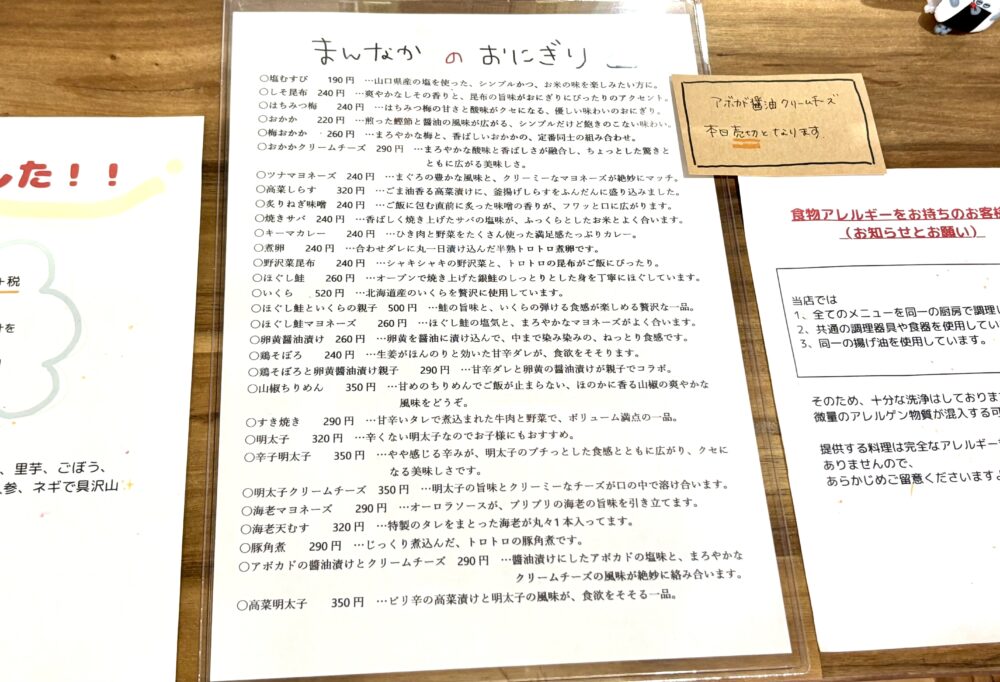 まんなか の おにぎり
○塩むすび 190円 …山口県産の塩を使った、シンプルかつ、お米の味を楽しみたい方に。
○しそ昆布 240円 …爽やかなしその香りと、昆布の旨味がおにぎりにぴったりのアクセント。
○はちみつ梅 240円 …はちみつ梅の甘さと酸味がクセになる、優しい味わいのおにぎり。
○おかか 220円 …煎った鰹節と醤油の風味が広がる、シンプルだけど飽きのこない味わい。
○梅おかか 260円 …まろやかな梅と、香ばしいおかかの、定番同士の組み合わせ。
○おかかクリームチーズ 290円 …まろやかな酸味と香ばしさが融合し、ちょっとした驚きと
ともに広がる美味しさ。
○ツナマヨネーズ 240円 …まぐろの豊かな風味と、クリーミーなマヨネーズが絶妙にマッチ。
○高菜しらす 320円 …ごま油香る高菜漬けに、釜揚げしらすをふんだんに盛り込みました。
○炙りねぎ味噌 240円 …ご飯に包む直前に炙った味噌の香りが、フワッと口に広がります。
○焼きサバ 240円 …香ばしく焼き上げたサバの塩味が、ふっくらとしたお米とよく合います。
○キーマカレー 240円 …ひき肉と野菜をたくさん使った満足感たっぷりカレー。
○煮卵 240円 …合わせダレに丸一日漬け込んだ半熟トロトロ煮卵です。
○野沢菜昆布 240円 …シャキシャキの野沢菜と、トロトロの昆布がご飯にぴったり。
○ほぐし鮭 260円 …オーブンで焼き上げた銀鮭のしっとりとした身を丁寧にほぐしています。
○いくら 520円 …北海道産のいくらを贅沢に使用しています。
○ほぐし鮭といくらの親子 500円 …鮭の旨味と、いくらの弾ける食感が楽しめる贅沢な一品。
○ほぐし鮭マヨネーズ 260円 …ほぐし鮭の塩気と、まろやかなマヨネーズがよく合います。
○卵黄醤油漬け 260円 …卵黄を醤油に漬け込んで、中まで染み染みの、ねっとり食感です。
○鶏そぼろ 240円 …生姜がほんのりと効いた甘辛ダレが、食欲をそそります。
○鶏そぼろと卵黄醤油漬け親子 290円 …甘辛ダレと卵黄の醤油漬けが親子でコラボ。
○山椒ちりめん 350円 …甘めのちりめんでご飯が止まらない、ほのかに香る山椒の爽やかな
風味をどうぞ。
○すき焼き 290円 …甘辛いタレで煮込まれた牛肉と野菜で、ボリューム満点の一品。
○明太子 320円 …辛くない明太子なのでお子様にもおすすめ。
○辛子明太子 350円 …やや感じる辛みが、明太子のプチっとした食感とともに広がり、クセに
なる美味しさです。
○明太子クリームチーズ 350円 …明太子の旨味とクリーミーなチーズが口の中で溶け合います。
○海老マヨネーズ 290円 …オーロラソースが、プリプリの海老の旨味を引き立てます。
○海老天むす 320円 …特製のタレをまとった海老が丸々1本入ってます。
○豚角煮 290円 …じっくり煮込んだ、トロトロの豚角煮です。
○アボカドの醤油漬けとクリームチーズ 290円 …醤油漬けにしたアボカドの塩味と、まろやかな
クリームチーズの風味が絶妙に絡み合います。
○高菜明太子 350円 …ピリ辛の高菜漬けと明太子の風味が、食欲をそそる一品。
アボカド醤油クリームチーズ
本日売切となります
した！！
+税
けを
、里芋、ごぼう、
人参、ネギで具沢山
食物アレルギーをお持ちのお客様
（お知らせとお願い）
当店では
1、全てのメニューを同一の厨房で調理し
2、共通の調理器具や食器を使用してい
3、同一の揚げ油を使用しています。
そのため、十分な洗浄はしておりま
微量のアレルゲン物質が混入する可
提供する料理は完全なアレルギー
ありませんので、
あらかじめご留意くださいますよ